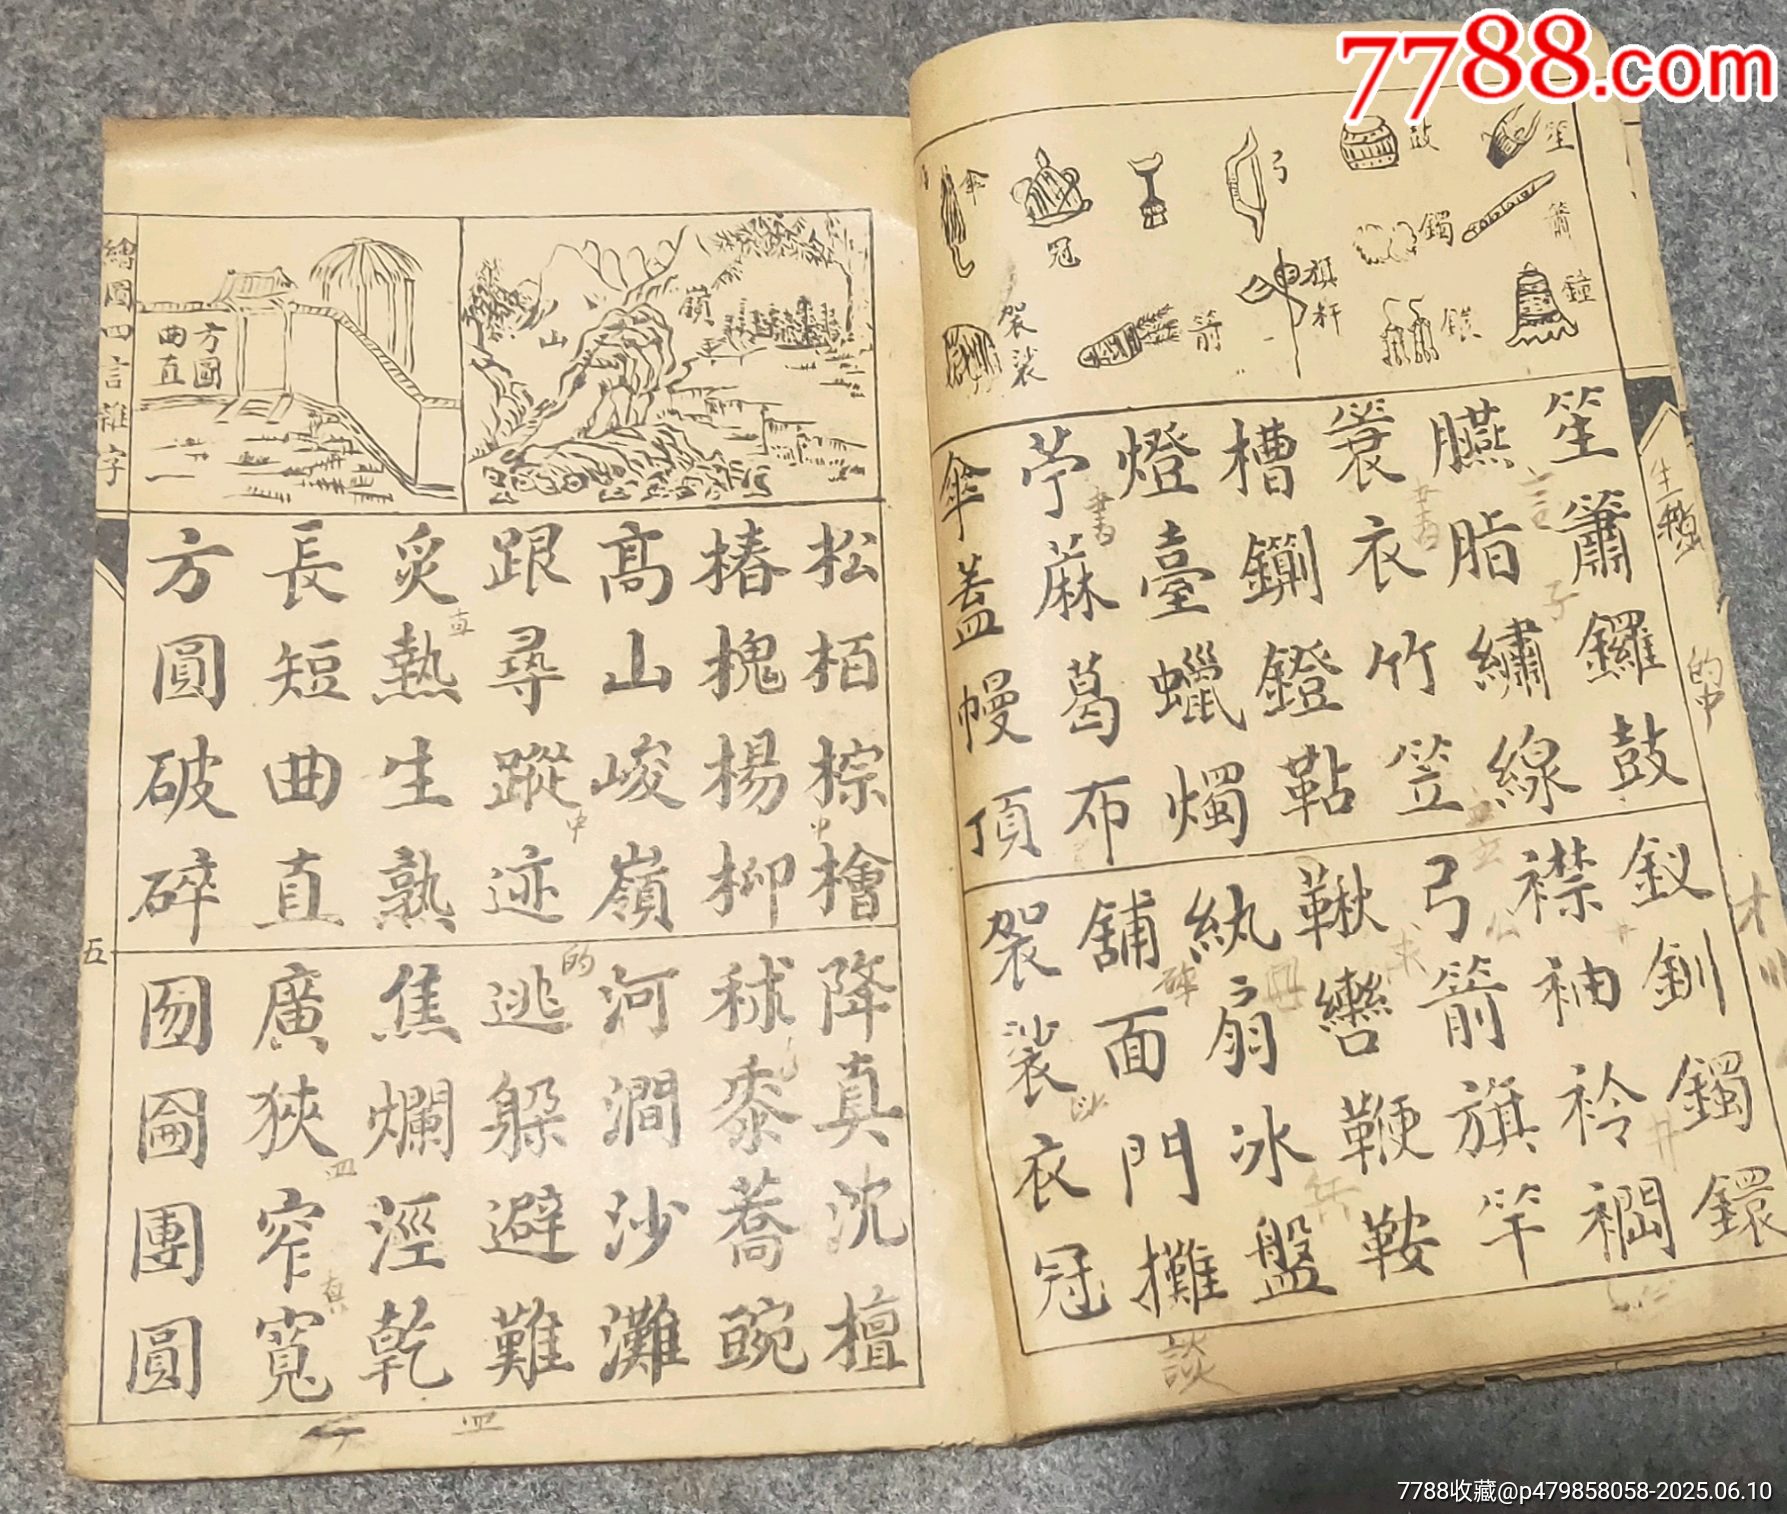 7788.com
笙
鼓
弓
冠
傘
簫
鐲
旗杆
鐘
箭
袈裟
笙簫鑼鼓
臙脂繡線
蓑衣竹笠
槽鍘鐙鞊
燈臺蠟燭
苧蔴葛布
傘蓋幔頂
釵釧鐲鐶
襟袖衿襉
弓箭旗竿
鞦轡鞭鞍
紈扇冰盤
舖面門攤
袈裟衣冠
嶺
山
方圓
曲直
繪圖四言雜字
五
松栢棕檜
椿槐楊柳
高山峻嶺
跟尋蹤迹
炙熱生熟
長短曲直
方圓破碎
降真沈檀
秫黍蕎豌
河澗沙灘
逃躲避難
焦爛溼乾
廣狹窄寬
囫圇團圓
談
的
7788收藏@p479858058-2025.06.10